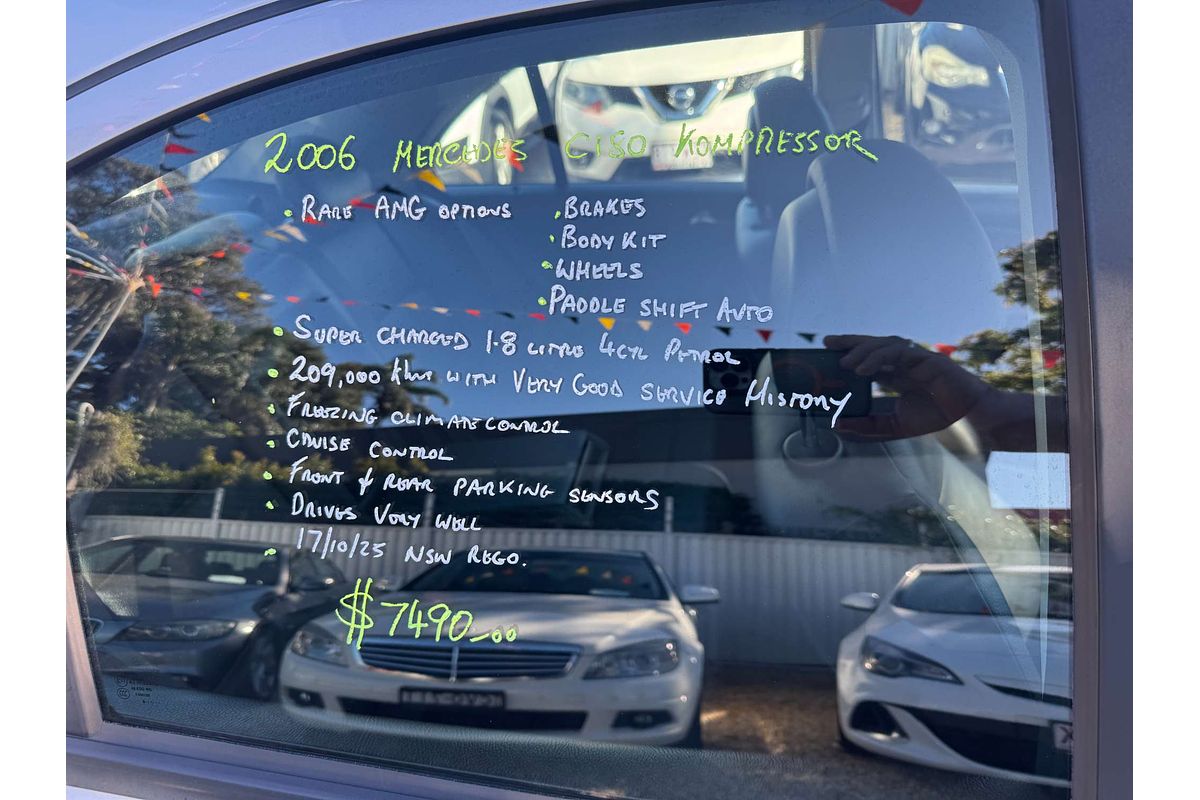 2006 MERCEDES C150 KOMPRESSOR
• RARE AMG OPTIONS • BRAKES
• BODY KIT
• WHEELS
• PADDLE SHIFT AUTO
• SUPER CHARGED 1.8 LITRE 4CYL PETROL
• 209,000 kms WITH VERY GOOD SERVICE HISTORY
• FREEZING CLIMATE CONTROL
• CRUISE CONTROL
• FRONT & REAR PARKING SENSORS
• DRIVES VERY WELL
• 17/10/25 NSW REGO.
$7490_.00